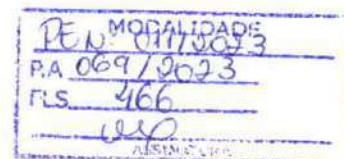 MODALIDADE
PEN: 011/2023
P.A 069/2023
FLS. 466
ASSINATURA